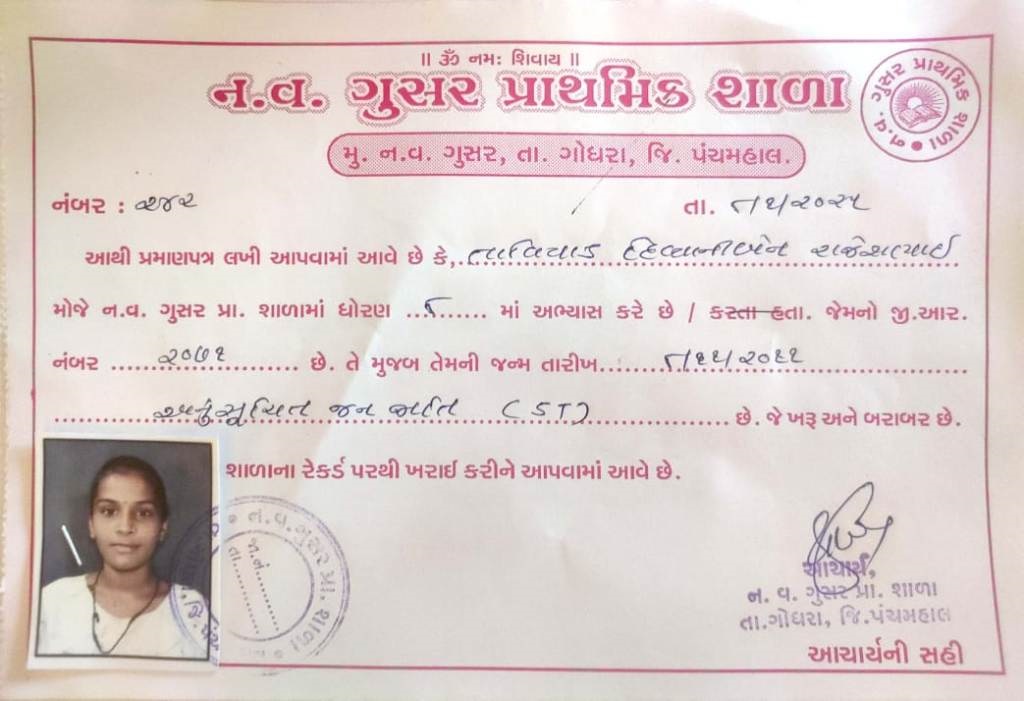 ॥ ૐ નમઃ શિવાય ॥
ન.વ. ગુસર પ્રાથમિક શાળા
ન.વ. ગુસર પ્રાથમિક શાળા
મુ. ન.વ. ગુસર, તા. ગોધરા, જિ. પંચમહાલ.
નંબર : ૨૭૨ તા.
આથી પ્રમાણપત્ર લખી આપવામાં આવે છે કે, તાવિયાડ દિવ્યાનીબેન રાજેશભાઈ
મોજે ન.વ. ગુસર પ્રા. શાળામાં ધોરણ ...... માં અભ્યાસ કરે છે / કરતા હતા. જેમનો જી.આર.
નંબર ૨૦૭૧ છે. તે મુજબ તેમની જન્મ તારીખ
અનુસૂચિત જન જાતિ (ST) છે. જે ખરૂ અને બરાબર છે.
શાળાના રેકર્ડ પરથી ખરાઈ કરીને આપવામાં આવે છે.
ન.વ.ગુસર પ્રા. શાળા
જા.નં.
તા.
આચાર્ય,
ન. વ. ગુસર પ્રા. શાળા
તા.ગોધરા, જિ.પંચમહાલ
આચાર્યની સહી